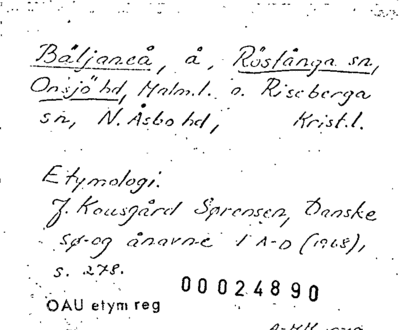 Bäljaneå, å, Röstånga sn,
Onsjö hd, Malm.l. o. Riseberga
sn, N. Åsbo hd, Krist.l.
Etymologi.
J. Kousgård Sørensen, Danske
sø- og ånavne 1 A-D (1968),
s. 278.
00024890
OAU etym reg